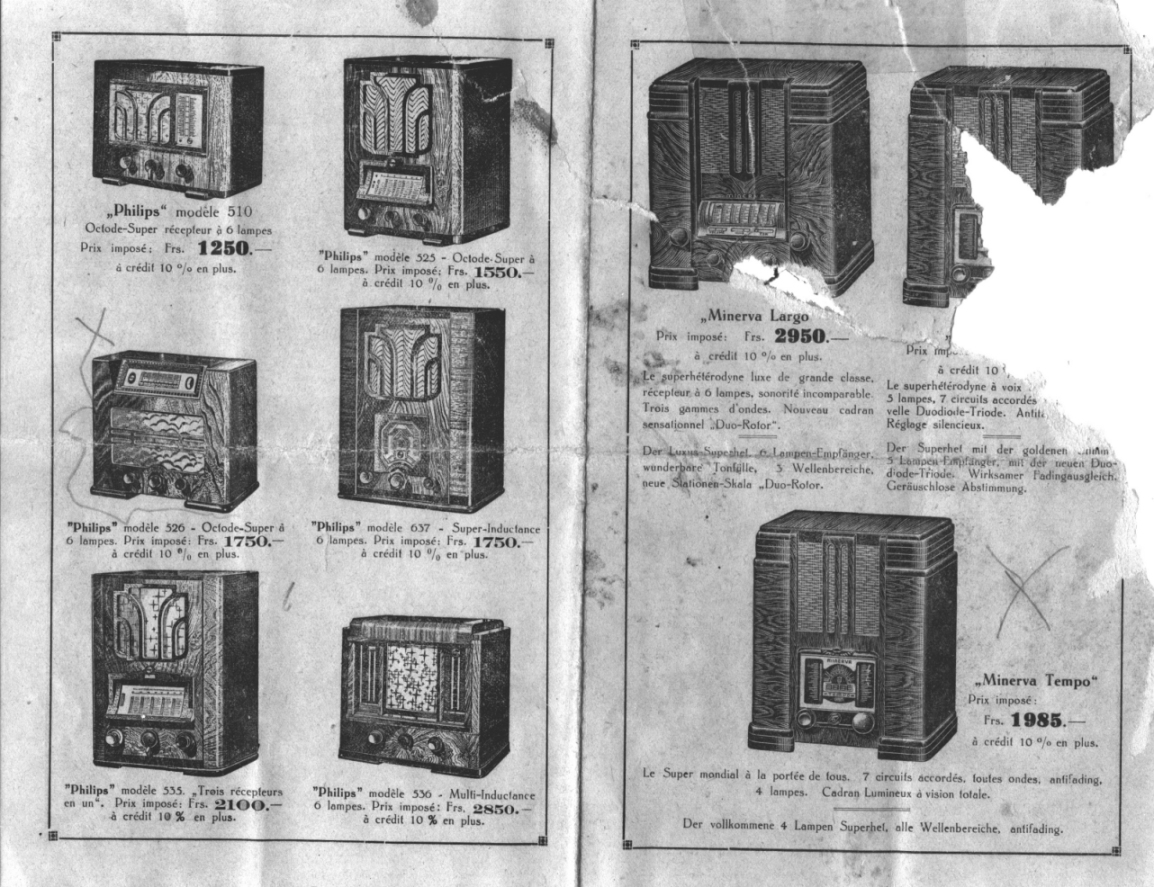 „Philips“ modèle 510
Octode-Super récepteur à 6 lampes
Prix imposé: Frs. 1250.—
à crédit 10 % en plus.
"Philips" modèle 525 - Octode-Super à
6 lampes. Prix imposé: Frs. 1550.—
à crédit 10 % en plus.
"Philips" modèle 526 - Octode-Super à
6 lampes. Prix imposé: Frs. 1750.—
à crédit 10 % en plus.
"Philips" modèle 637 - Super-Inductance
6 lampes. Prix imposé: Frs. 1750.—
à crédit 10 % en plus.
"Philips" modèle 535. „Trois récepteurs
en un“. Prix imposé: Frs. 2100.—
à crédit 10 % en plus.
"Philips" modèle 536 - Multi-Inductance
6 lampes. Prix imposé: Frs. 2850.—
à crédit 10 % en plus.
„Minerva Largo
Prix imposé: Frs. 2950.—
à crédit 10 % en plus.
Le superhétérodyne luxe de grande classe,
récepteur à 6 lampes, sonorité incomparable.
Trois gammes d'ondes. Nouveau cadran
sensationnel „Duo-Rotor“.
Der Luxus-Superhet, 6 Lampen-Empfänger,
wunderbare Tonfülle, 3 Wellenbereiche,
neue Stationen-Skala „Duo-Rotor.
Prix
à crédit 10
Le superhétérodyne à voix
5 lampes, 7 circuits accordés
velle Duodiode-Triode.
Réglage silencieux.
Der Superhet mit der goldenen
5 Lampen-Empfänger, mit der neuen Duo-
diode-Triode. Wirksamer Fadingausgleich.
Geräuschlose Abstimmung.
MINERVA
„Minerva Tempo“
Prix imposé:
Frs. 1985.—
à crédit 10 % en plus.
Le Super mondial à la portée de tous. 7 circuits accordés, toutes ondes, antifading,
4 lampes. Cadran Lumineux à vision totale.
Der vollkommene 4 Lampen Superhet, alle Wellenbereiche, antifading.